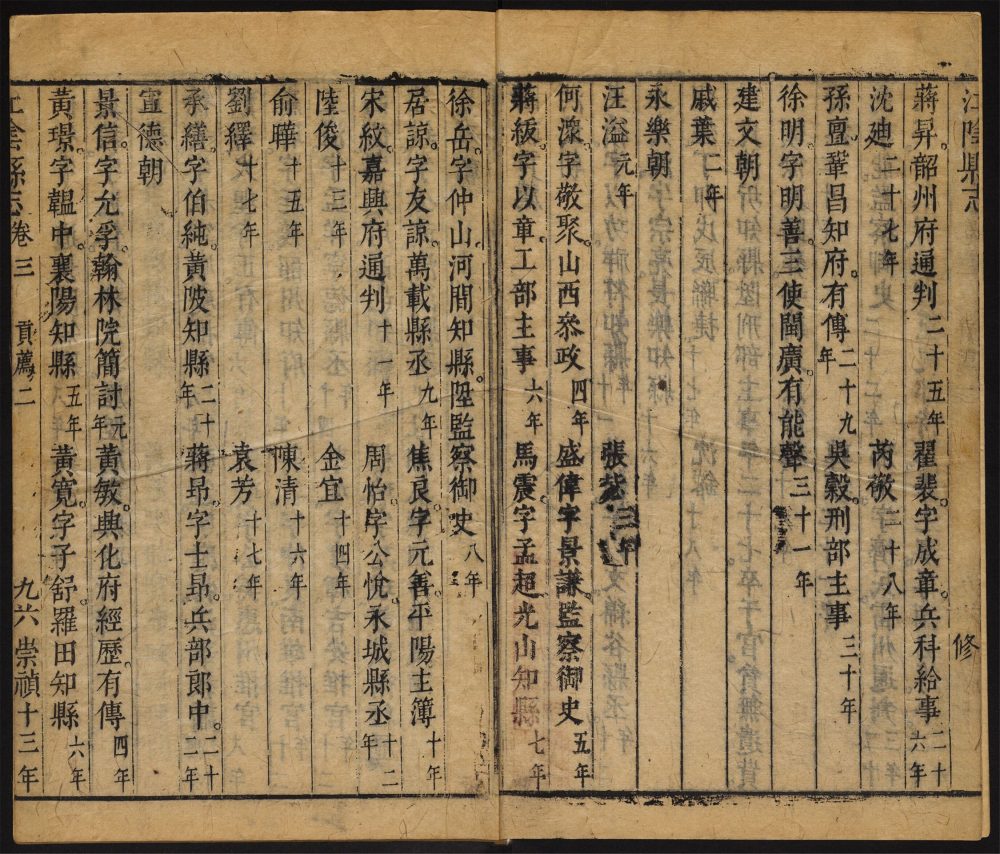 江陰縣志 修
蔣昇韶州府通判二十五年 翟裴字成章兵科給事二十六年
沈廸二十七年 芮敬二十八年
孫亶鞏昌知府有傳二十九年 吳穀刑部主事三十年
徐明字明善三使閩廣有能聲三十一年
建文朝
戚葉二年
永樂朝
汪溢元年 張 三年
何澋字敬聚山西叅政四年 盛偉字景謙監察御史五年
蔣級字以童工部主事六年 馬震字孟超光山知縣七年
徐岳字仲山河間知縣陞監察御史八年
居諒字友諒萬載縣丞九年 焦良字元善平陽主簿十年
宋紋嘉興府通判十一年 周怡字公悅永城縣丞十二年
陸俊十三年 金宜十四年
俞曄十五年 陳清十六年
劉繹十七年 袁芳十七年
承繕字伯純黃陂知縣二十年 蔣昻字士昻兵部郎中二十二年
宣德朝
景信字允孚翰林院簡討元年 黃敏興化府經歷有傳四年
黃璟字韞中襄陽知縣五年 黃寬字子舒羅田知縣六年
江陰縣志卷三 貢薦二 九六 崇禎十三年